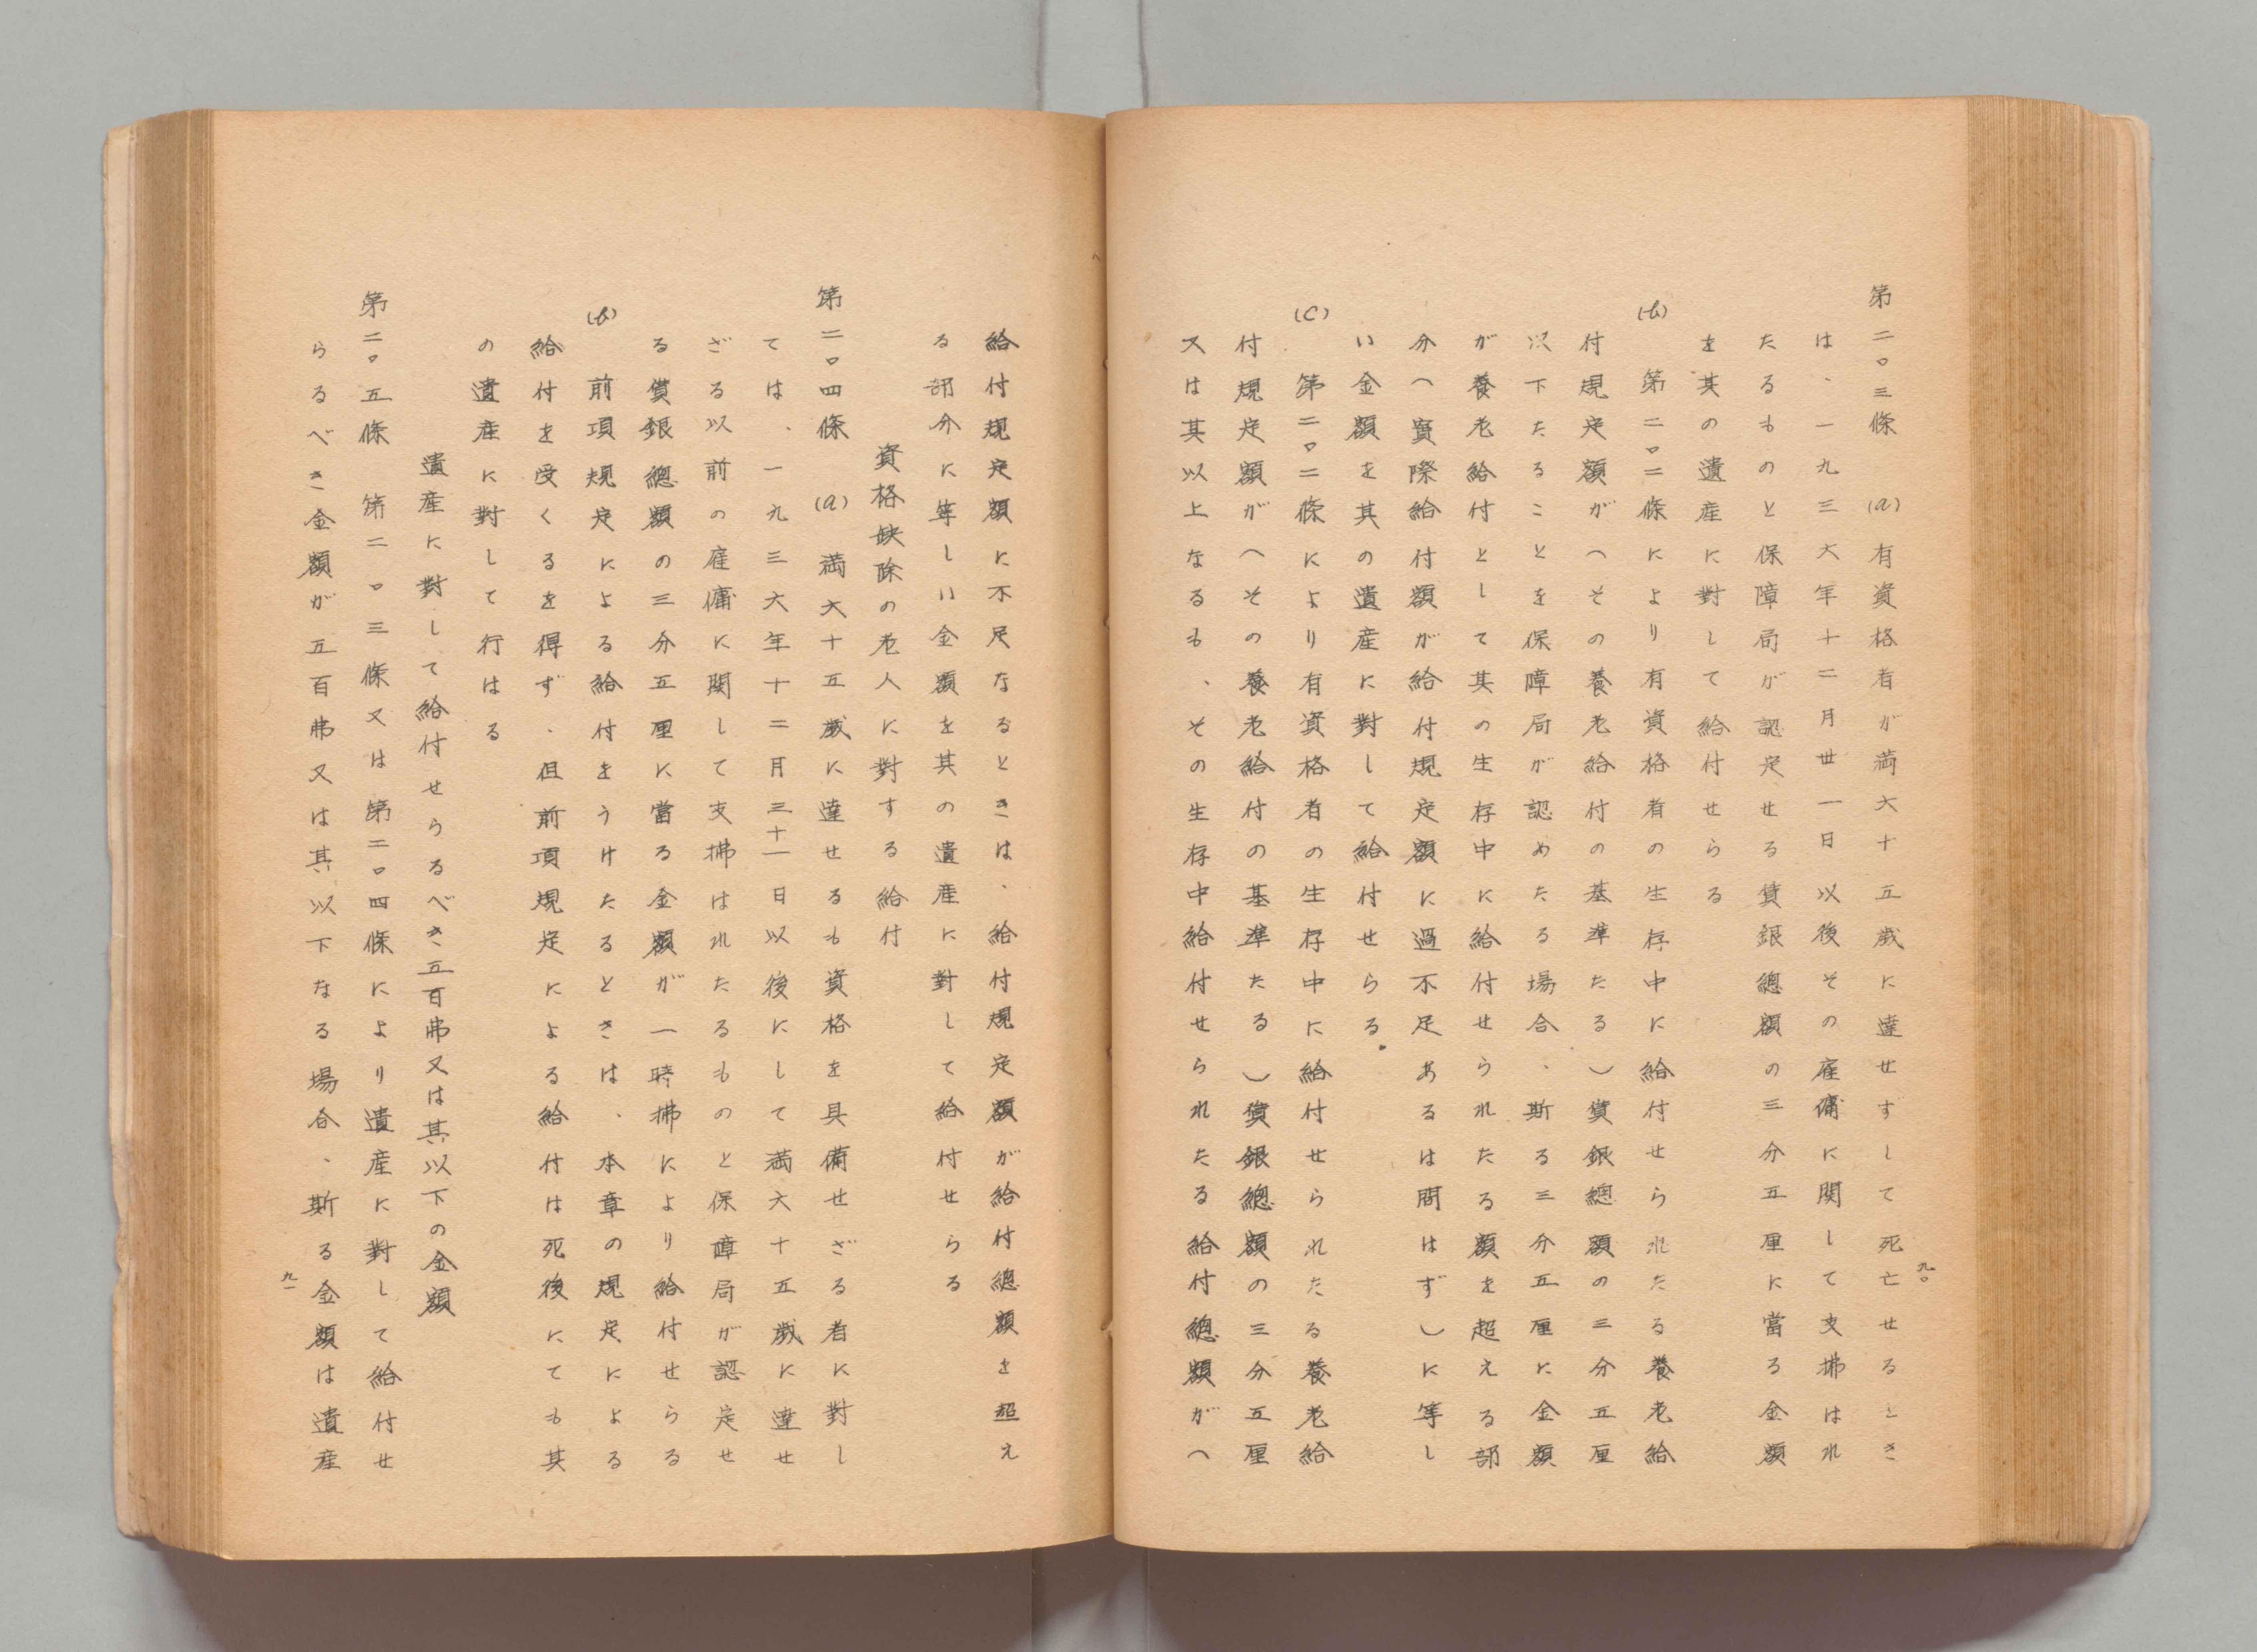 九〇
第二〇三條 (a)有資格者が満六十五歳に達せすして死亡せるとき
は、一九三六年十二月卅一日以後その雇傭に関して支拂はれ
たるものと保障局が認定せる賃銀總額の三分五厘に當る金額
を其の遺産に對して給付せらる
(b) 第二〇二條により有資格者の生存中に給付せられたる養老給
付規定額が(その養老給付の基準たる)賃銀總額の三分五厘
以下たることを保障局が認めたる場合、斯る三分五厘に金額
が養老給付として其の生存中に給付せられたる額を超える部
分(實際給付額が給付規定額に過不足あるは問はず)に等し
い金額を其の遺産に對して給付せらる。
(c) 第二〇二條により有資格者の生存中に給付せられたる養老給
付規定額が(その養老給付の基準たる)賃銀總額の三分五厘
又は其以上なるも、その生存中給付せられたる給付總額が(
給付規定額に不足なるときは、給付規定額が給付總額を超え
る部分に等しい金額を其の遺産に對して給付せらる
資格缺除の老人に對する給付
第二〇四條 (a) 満六十五歳に達せるも資格を具備せざる者に對し
ては、一九三六年十二月三十一日以後にして満六十五歳に達せ
ざる以前の雇傭に関して支拂はれたるものと保障局が認定せ
る賃銀總額の三分五厘に當る金額が一時拂により給付せらる
(b) 前項規定による給付をうけたるときは、本章の規定による
給付を受くるを得ず、但前項規定による給付は死後にても其
の遺産に對して行はる
遺産に對して給付せらるべき五百弗又は其以下の金額
第二〇五條 第二〇三條又は第二〇四條により遺産に對して給付せ
らるべき金額が五百弗又は其以下なる場合、斯る金額は遺産
九一